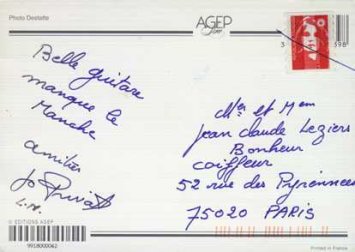 Photo Destatte
AGEP
3
398
Belle guitare
manque le
Manche
amitiés
Jo Privat
Mr et Mem
jean claude Leziers
Bonheur
coiffeur
52 rue des Pyrennees
75020 PARIS
© EDITIONS AGEP
9918000062
Printed in France